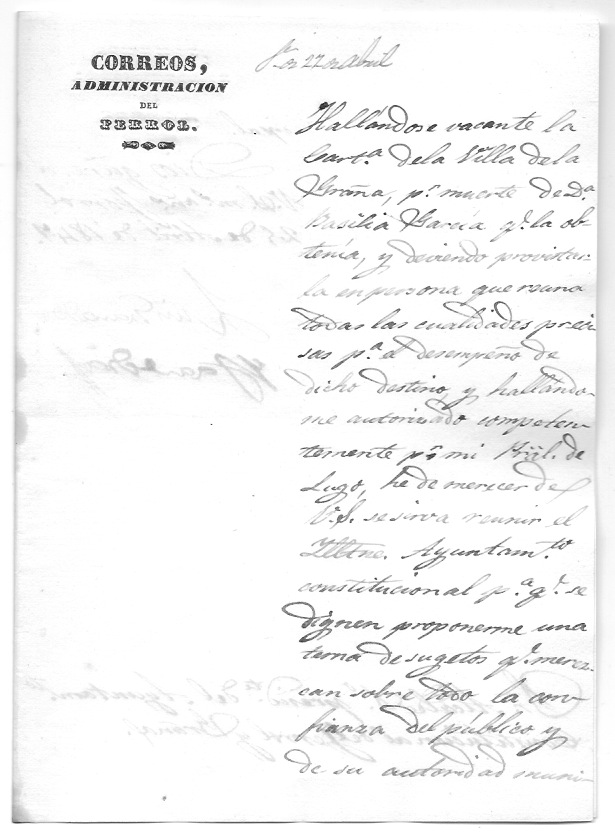 CORREOS,
ADMINISTRACION
DEL
FERROL.
27 de Abril
Hallándose vacante la
Cart.ª de la Villa de la
Graña, p.r muerte de D.ª
Basilia García q.e la ob-
tenía, y deviendo provistar-
la en persona que reuna
todas las cualidades preci-
sas p.ª el desempeño de
dicho destino, y hallándo-
me autorizado competen-
temente p.r mi Pral. de
Lugo, he de merecer de
V.S. se sirva reunir el
Ayuntam.to
constitucional p.ª q.e se
dignen proponerme una
terna de sugetos q.e merez-
can sobre todo la con-
fianza del público y
de su autoridad muni-